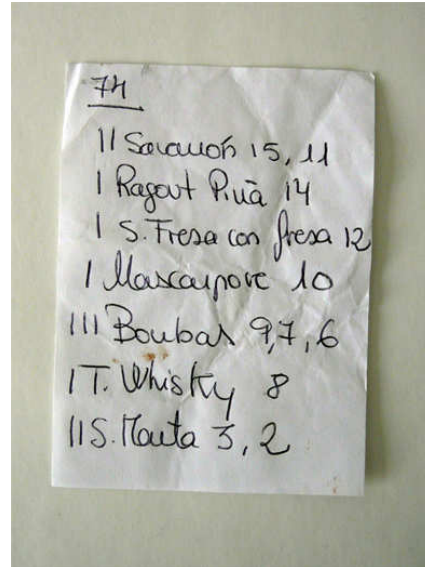 74
II Sacauón 15, 11
I Ragout Piña 14
I S. Fresa con fresa 12
I Mascarpone 10
III Boubas 9,7,6
I T. Whisky 8
II S. Manta 3, 2